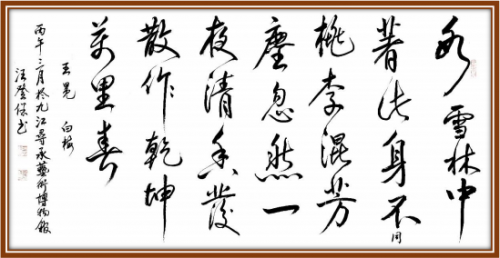 冰雪林中
著此身不同
桃李混芳
塵忽然一
夜清香發
散作乾坤
萬里春
王冕 白梅
丙午月於九江尋承藝術博物館
汪登书